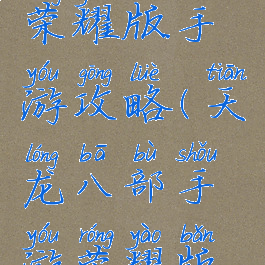 荣耀版手
yóu gōng lüè tiān
游攻略(天
lóng bā bù shǒu
龙八部手
yóu róng yào bǎn
游荣耀版